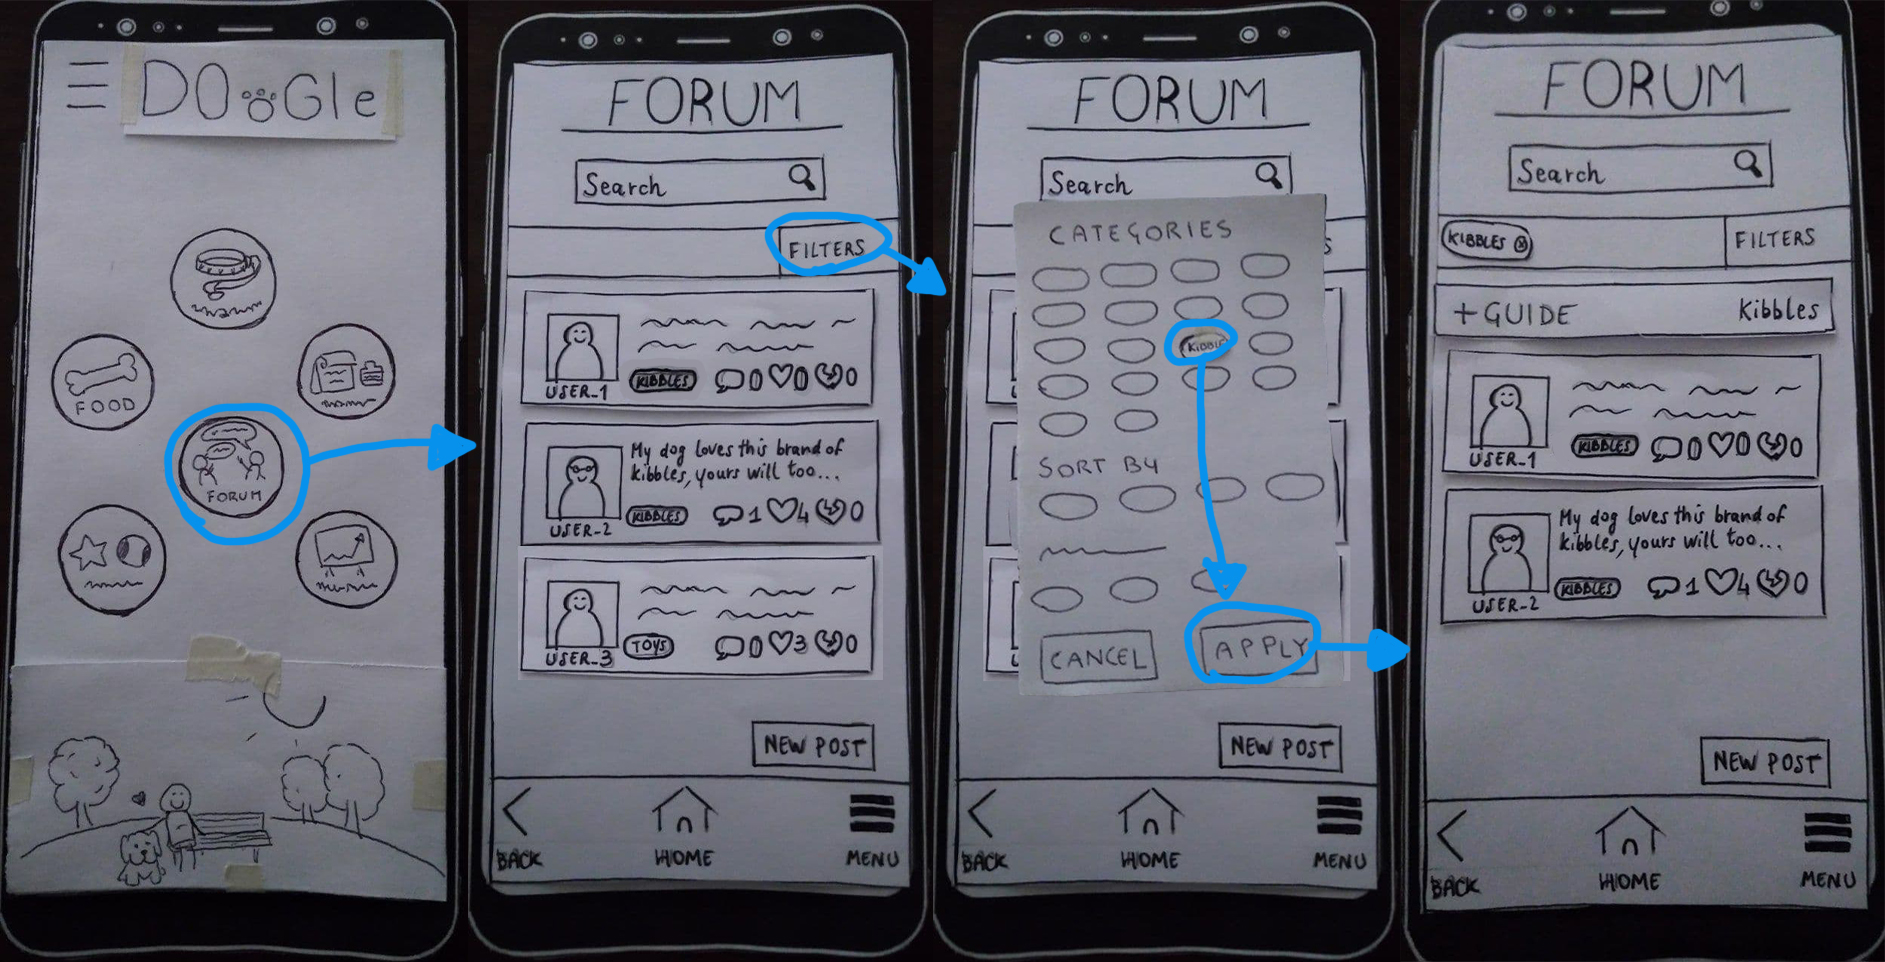 DOGle
FOOD
FORUM
FORUM
Search
FILTERS
USER_1
KIBBLES 0 0 0
My dog loves this brand of
kibbles, yours will too...
USER_2
KIBBLES 1 4 0
USER_3
TOYS 0 3 0
NEW POST
BACK
HOME
MENU
FORUM
Search
CATEGORIES
KIBBLE
SORT BY
CANCEL
APPLY
NEW POST
BACK
HOME
MENU
FORUM
Search
KIBBLES
FILTERS
+GUIDE Kibbles
USER_1
KIBBLES 0 0 0
My dog loves this brand of
kibbles, yours will too...
USER_2
KIBBLES 1 4 0
NEW POST
BACK
HOME
MENU